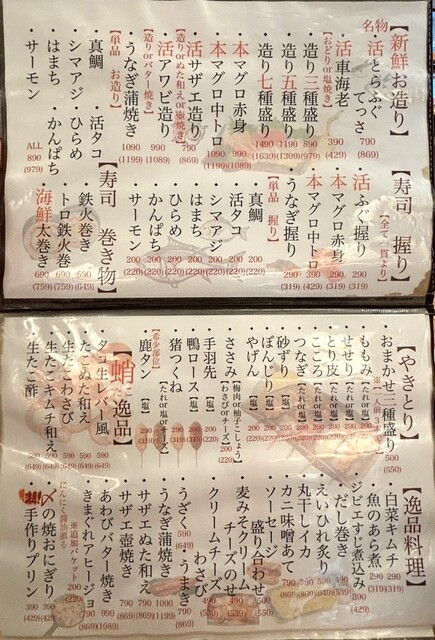 【新鮮お造り】
名物
・活とらふぐ てっさ 790 (869)
・活車海老 390 (429)
【おどり or 塩焼き】
・造り三種盛り 890 (979)
・造り五種盛り 1190 (1309)
・造り七種盛り 1490 (1639)
・本マグロ赤身 990 (1089)
・本マグロ中トロ 1090 (1199)
・活サザエ造り 790 (869)
【造り or ぬた和え or 壷焼き】
・活アワビ造り 990 (1089)
【造り or バター焼き】
・うなぎ蒲焼き 1090 (1199)
【単品 お造り】
・真鯛 ・活タコ
・シマアジ ・ひらめ
・はまち ・かんぱち
・サーモン
ALL 890 (979)
【寿司 握り】
【全て一貫より】
・活ふぐ握り 290 (319)
・本マグロ赤身 390 (429)
・本マグロ中トロ
・うなぎ握り 290 (319)
【単品 握り】
・真鯛 200 (220)
・活タコ 200 (220)
・シマアジ 200 (220)
・はまち 200 (220)
・ひらめ 200 (220)
・かんぱち 200 (220)
・サーモン 200 (220)
【寿司 巻き物】
・鉄火巻き 590 (649)
・トロ鉄火巻 690 (759)
・海鮮太巻き 690 (759)
【やきとり】
・おまかせ三種盛り 500 (550)
・ももみ【たれor塩】
・せせり【たれor塩】
・とり皮【たれor塩】
・こころ【たれor塩】
・つなぎ【たれor塩】
・砂ずり【塩】
・ぼんじり【塩】
・やげん【塩】
・ささみ【梅肉or柚子こしょう】【わさびorチーズ】
・手羽先【塩】
・鴨ロース【塩】
・猪つくね
【希少部位】
・鹿タン【塩】
【蛸 逸品】
・タコ生レバー風 590 (649)
・たこぬた和え 590 (649)
・生たこわさび 590 (649)
・生たこキムチ和え 590 (649)
・生たこ酢 590 (649)
【逸品料理】
・白菜キムチ 290 (319)
・魚のあら煮 290 (319)
・ジビエすじ煮込み 390 (429)
・だし巻き
・えいひれ炙り
・丸干しイカ
・カニ味噌あて
・ソーセージ盛り合わせ
・麦みそクリームチーズのせ
・クリームチーズわさび
・うざく 590 (649)
・うまき
・うなぎ蒲焼き
・サザエぬた和え
・サザエ壺焼き 790 (869)
・あわびバター焼き 990 (1089)
・きまぐれアヒージョ 790 (869)
※追加バケット 200 (220)
にんにく醤油潜る
・〆の焼おにぎり 290 (429)
・手作りプリン 390 (429)